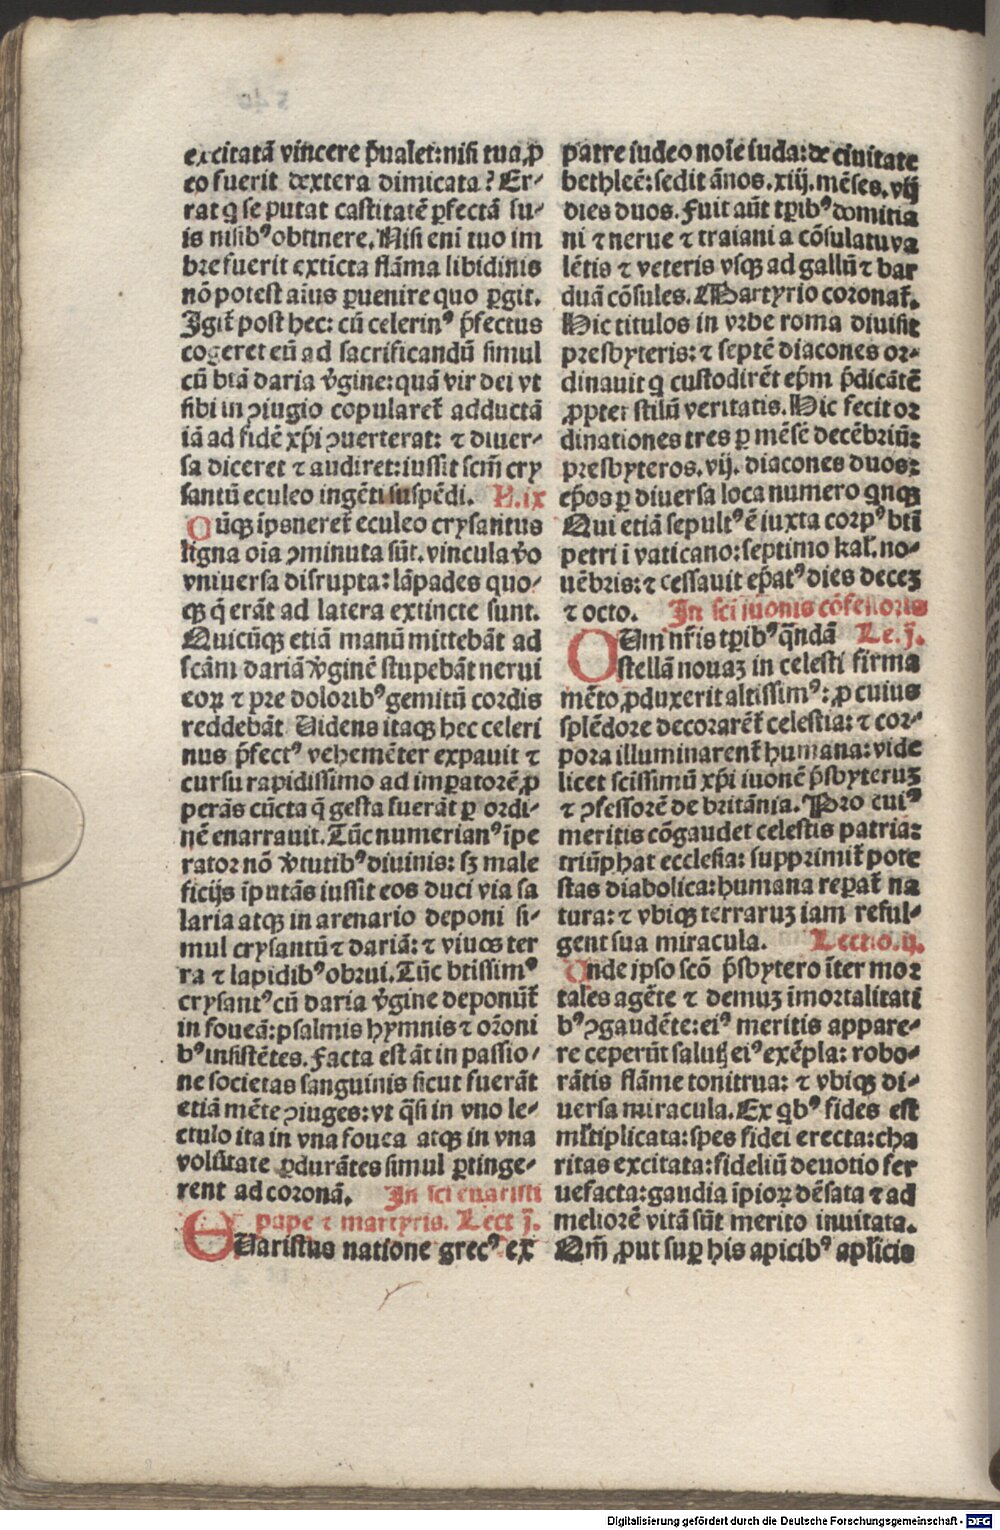 excitatā vincere p̄ualet: nisi tua ꝓ
eo fuerit dextera dimicata? Er⸗
rat q̇ se putat castitatē ꝑfectā su⸗
is nisibꝰ obtinere. Nisi eni tuo im
bre fuerit extīcta flāma libidinis
nō potest aīus ꝑuenire quo ꝑgit.
Igit̄ post hec: cū celerinꝰ p̄fectus
cogeret eū ad sacrificandū simul
cū btā daria v̄gine: quā vir dei vt
sibi in ꝯiugio copularet̄ adductā
iā ad fidē xp̄i ꝯuerterat: ⁊ diuer⸗
sa diceret ⁊ audiret: iussit scm̄ cry
santū eculeo ingēti suspēdi. L.ix
Cūqꝫ īpōneret̄ eculeo crysantus
ligna oīa ꝯminuta sūt. vincula v̄o
vniuersa disrupta: lāpades quo⸗
qꝫ q̄ erāt ad latera extincte sunt.
Quicūqꝫ etiā manū mittebāt ad
scām dariā v̄ginē stupebāt nerui
eoꝝ ⁊ pre doloribꝰ gemitū cordis
reddebāt Videns itaqꝫ hec celeri
nus p̄fectꝰ vehemēter expauit ⁊
cursu rapidissimo ad imꝑatorē ꝓ
perās cūcta q̄ gesta fuerāt ꝑ ordi⸗
nē enarrauit. Tūc numerianꝰ īpe
rator nō v̄tutibꝰ diuinis: sꝫ male
ficijs īputās iussit eos duci via sa
laria atqꝫ in arenario deponi si⸗
mul crysantū ⁊ dariā: ⁊ viuos ter
ra ⁊ lapidibꝰ obrui. Tūc btissimꝰ
crysantꝰ cū daria v̄gine deponūt̄
in foueā: psalmis hymnis ⁊ or̄oni
bꝰ insistētes. Facta est āt in passio⸗
ne societas sanguinis sicut fuerāt
etiā mēte ꝯiuges: vt q̄si in vno le⸗
ctulo ita in vna fouea atqꝫ in vna
volūtate ꝑdurātes simul ꝑtinge⸗
rent ad coronā. In sci euaristi
pape ⁊ martyris. Lect j.
EUaristus natione grecꝰ ex
patre iudeo noīe iuda: de ciuitate
bethleē: sedit ānos. xiij. mēses. vij
dies duos. Fuit aūt tꝑibꝰ domitia
ni ⁊ nerue ⁊ traiani a cōsulatu va
lētis ⁊ veteris vsqꝫ ad gallū ⁊ bar
duā cōsules. Martyrio coronat̄.
Hic titulos in vrbe roma diuisit
presbyteris: ⁊ septē diacones or⸗
dinauit q̇ custodirēt ep̄m p̄dicātē
ꝓpter stilū veritatis. Hic fecit or
dinationes tres ꝑ mēsē decēbriū:
presbyteros. vij. diacones duos:
ep̄os ꝑ diuersa loca numero qnqꝫ
Qui etiā sepultꝰ ē iuxta corpꝰ bti
petri ī vaticano: septimo kal̄. no⸗
uēbris: ⁊ cessauit ep̄atꝰ dies decez
⁊ octo. In sci iuonis cōfessoris
OUm nr̄is tꝑibꝰ q̄ndā Le. j.
stellā nouaꝫ in celesti firma
mēto ꝓduxerit altissimꝰ: ꝓ cuius
splēdore decorarēt̄ celestia: ⁊ cor⸗
pora illuminarent̄ humana: vide
licet scīssimū xp̄i iuonē p̄sbyteruꝫ
⁊ ꝯfessorē de britānia. Pro cuiꝰ
meritis cōgaudet celestis patria:
triūphat ecclesia: supprimit̄ pote
stas diabolica: humana reꝑat̄ na
tura: ⁊ vbiqꝫ terraruꝫ iam reful⸗
gent sua miracula. Lectio. ij.
Unde ipso scō p̄sbytero īter mor
tales agēte ⁊ demuꝫ īmortalitati
bꝰ ꝯgaudēte: eiꝰ meritis appare⸗
re ceperūt salutꝭ eiꝰ exēpla: robo⸗
rātis flāme tonitrua: ⁊ vbiqꝫ di⸗
uersa miracula. Ex qbꝰ fides est
ml̄tiplicata: spes fidei erecta: cha
ritas excitata: fideliū deuotio fer
uefacta: gaudia īpioꝝ dēsata ⁊ ad
meliorē vitā sūt merito inuitata.
Qm̄ ꝓut suꝑ his apicibꝰ apl̄icis
Digitalisierung gefördert durch die Deutsche Forschungsgemeinschaft - DFG